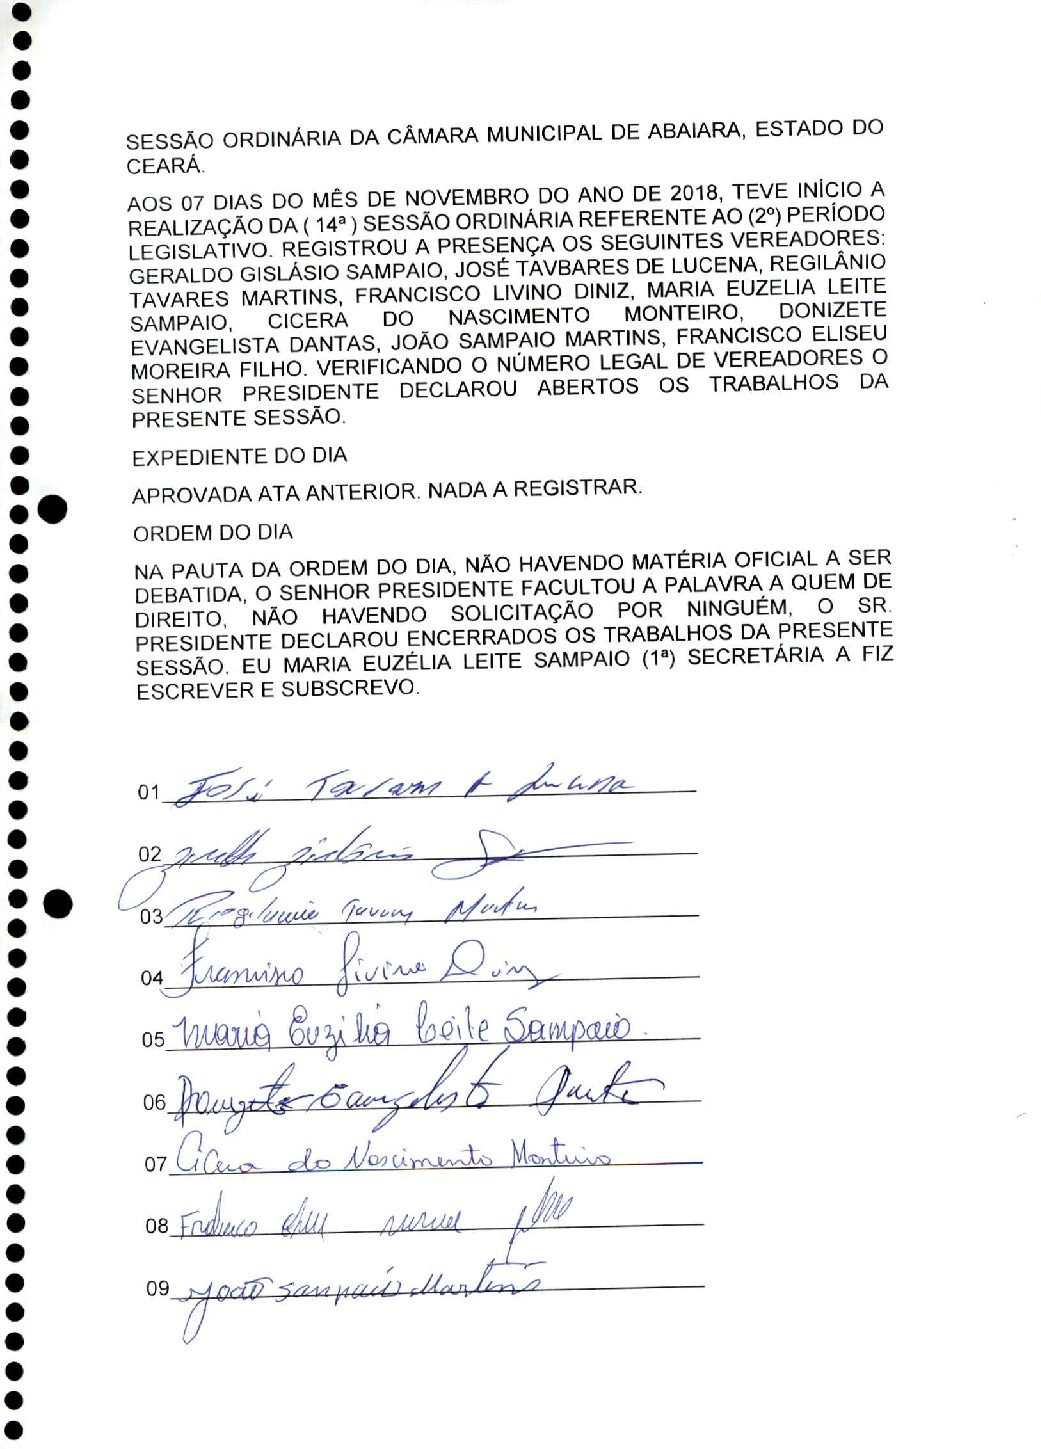 SESSÃO ORDINÁRIA DA CÂMARA MUNICIPAL DE ABAIARA, ESTADO DO
CEARÁ.
AOS 07 DIAS DO MÊS DE NOVEMBRO DO ANO DE 2018, TEVE INÍCIO A
REALIZAÇÃO DA ( 14ª ) SESSÃO ORDINÁRIA REFERENTE AO (2º) PERÍODO
LEGISLATIVO. REGISTROU A PRESENÇA OS SEGUINTES VEREADORES:
GERALDO GISLÁSIO SAMPAIO, JOSÉ TAVBARES DE LUCENA, REGILÂNIO
TAVARES MARTINS, FRANCISCO LIVINO DINIZ, MARIA EUZELIA LEITE
SAMPAIO, CICERA DO NASCIMENTO MONTEIRO, DONIZETE
EVANGELISTA DANTAS, JOÃO SAMPAIO MARTINS, FRANCISCO ELISEU
MOREIRA FILHO. VERIFICANDO O NÚMERO LEGAL DE VEREADORES O
SENHOR PRESIDENTE DECLAROU ABERTOS OS TRABALHOS DA
PRESENTE SESSÃO.
EXPEDIENTE DO DIA
APROVADA ATA ANTERIOR. NADA A REGISTRAR.
ORDEM DO DIA
NA PAUTA DA ORDEM DO DIA, NÃO HAVENDO MATÉRIA OFICIAL A SER
DEBATIDA, O SENHOR PRESIDENTE FACULTOU A PALAVRA A QUEM DE
DIREITO, NÃO HAVENDO SOLICITAÇÃO POR NINGUÉM, O SR.
PRESIDENTE DECLAROU ENCERRADOS OS TRABALHOS DA PRESENTE
SESSÃO. EU MARIA EUZÉLIA LEITE SAMPAIO (1ª) SECRETÁRIA A FIZ
ESCREVER E SUBSCREVO.
01 José
02
03 Martins
04 Francisco Livino Diniz
05 Maria Euzélia Leite Sampaio.
06 Evangelista
07 Cicera do Nascimento Monteiro
08
09 João Sampaio Martins